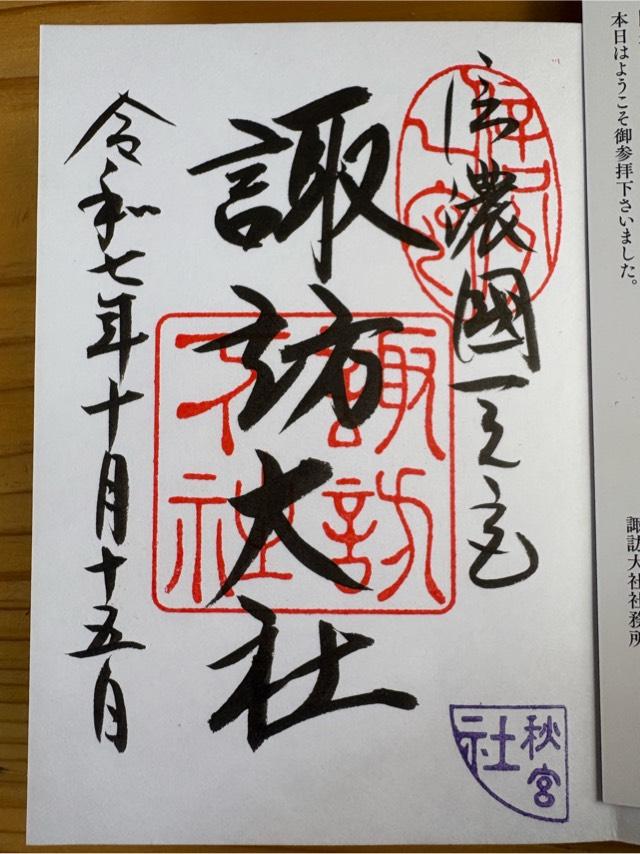 本日はようこそ御参拝下さいました。
諏訪大社社務所
信濃國一之宮
諏訪大社
令和七年十月十五日
諏訪
大社
秋宮
社